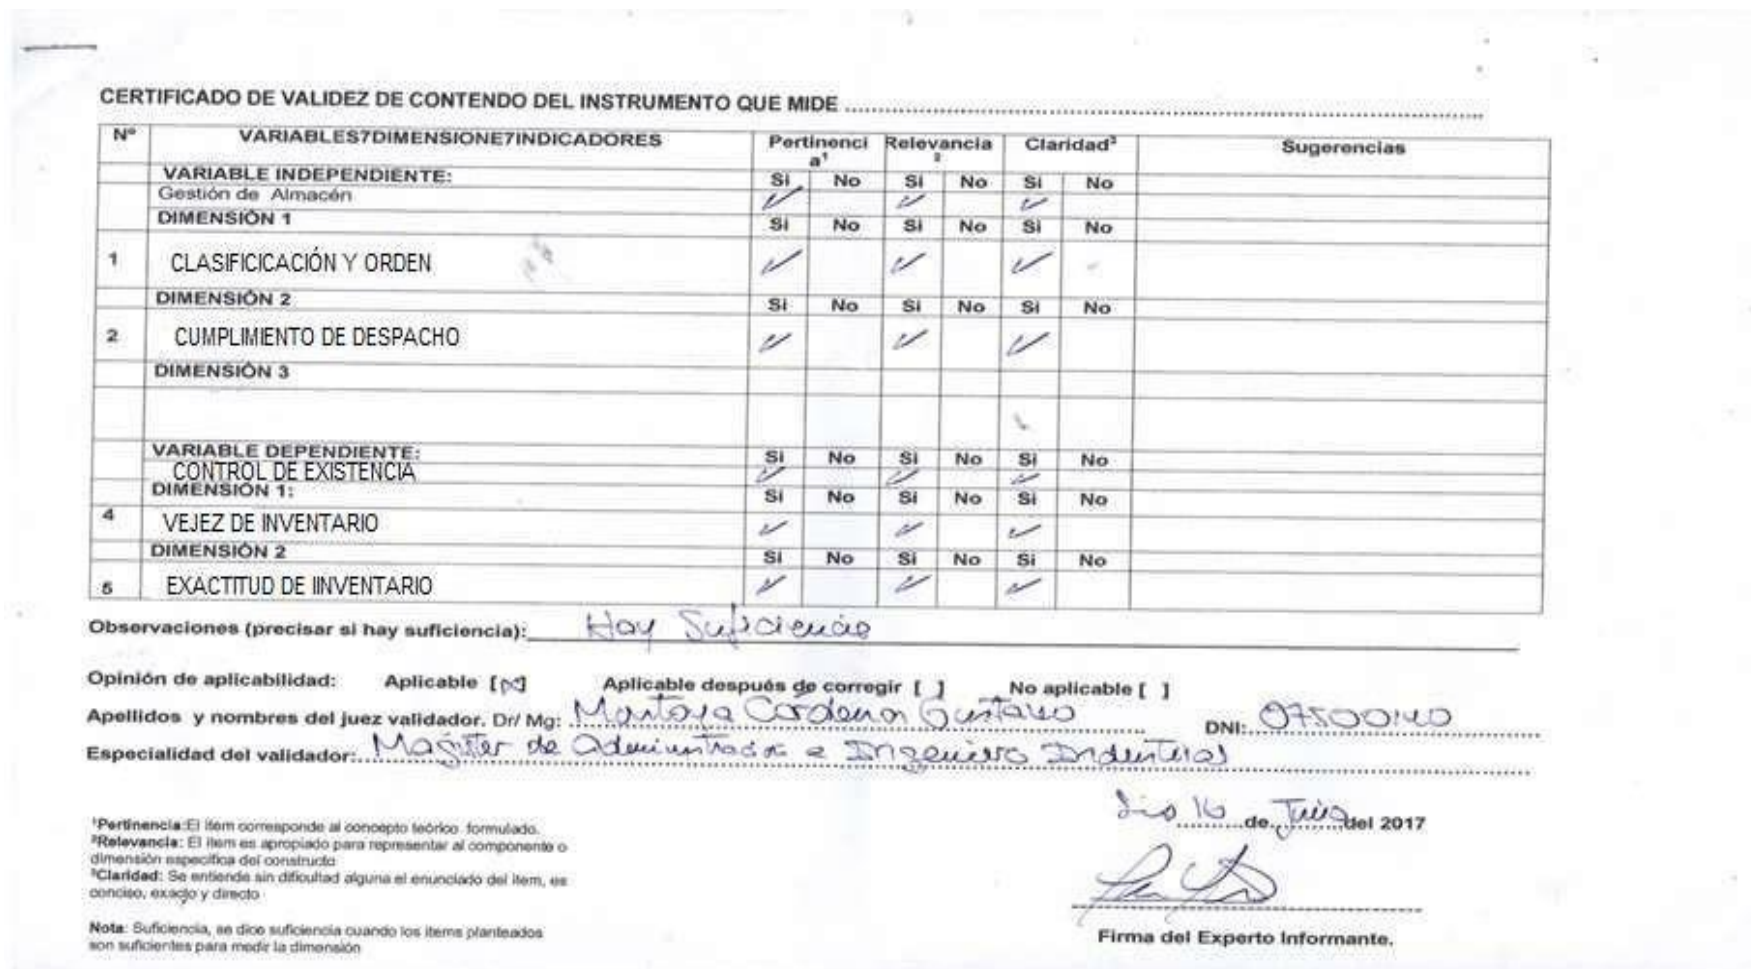 CERTIFICADO DE VALIDEZ DE CONTENDO DEL INSTRUMENTO QUE MIDE
Nº VARIABLES7DIMENSIONE7INDICADORES Pertinencia¹ Relevancia² Claridad³ Sugerencias
VARIABLE INDEPENDIENTE: Si No Si No Si No
Gestión de Almacén
DIMENSIÓN 1 Si No Si No Si No
1 CLASIFICICACIÓN Y ORDEN
DIMENSIÓN 2 Si No Si No Si No
2 CUMPLIMIENTO DE DESPACHO
DIMENSIÓN 3
VARIABLE DEPENDIENTE: Si No Si No Si No
CONTROL DE EXISTENCIA
DIMENSIÓN 1: Si No Si No Si No
4 VEJEZ DE INVENTARIO
DIMENSIÓN 2 Si No Si No Si No
5 EXACTITUD DE IINVENTARIO
Observaciones (precisar si hay suficiencia): Hay Suficiencia
Opinión de aplicabilidad: Aplicable [x] Aplicable después de corregir [ ] No aplicable [ ]
Apellidos y nombres del juez validador. Dr/ Mg: Montoya Cárdenas Gustavo DNI: 07500140
Especialidad del validador: Magister de Administración e Ingeniero Industrial
16 de Junio del 2017
¹Pertinencia:El ítem corresponde al concepto teórico formulado.
²Relevancia: El ítem es apropiado para representar al componente o
dimensión específica del constructo
³Claridad: Se entiende sin dificultad alguna el enunciado del ítem, es
conciso, exacto y directo
Nota: Suficiencia, se dice suficiencia cuando los ítems planteados
son suficientes para medir la dimensión
Firma del Experto Informante.